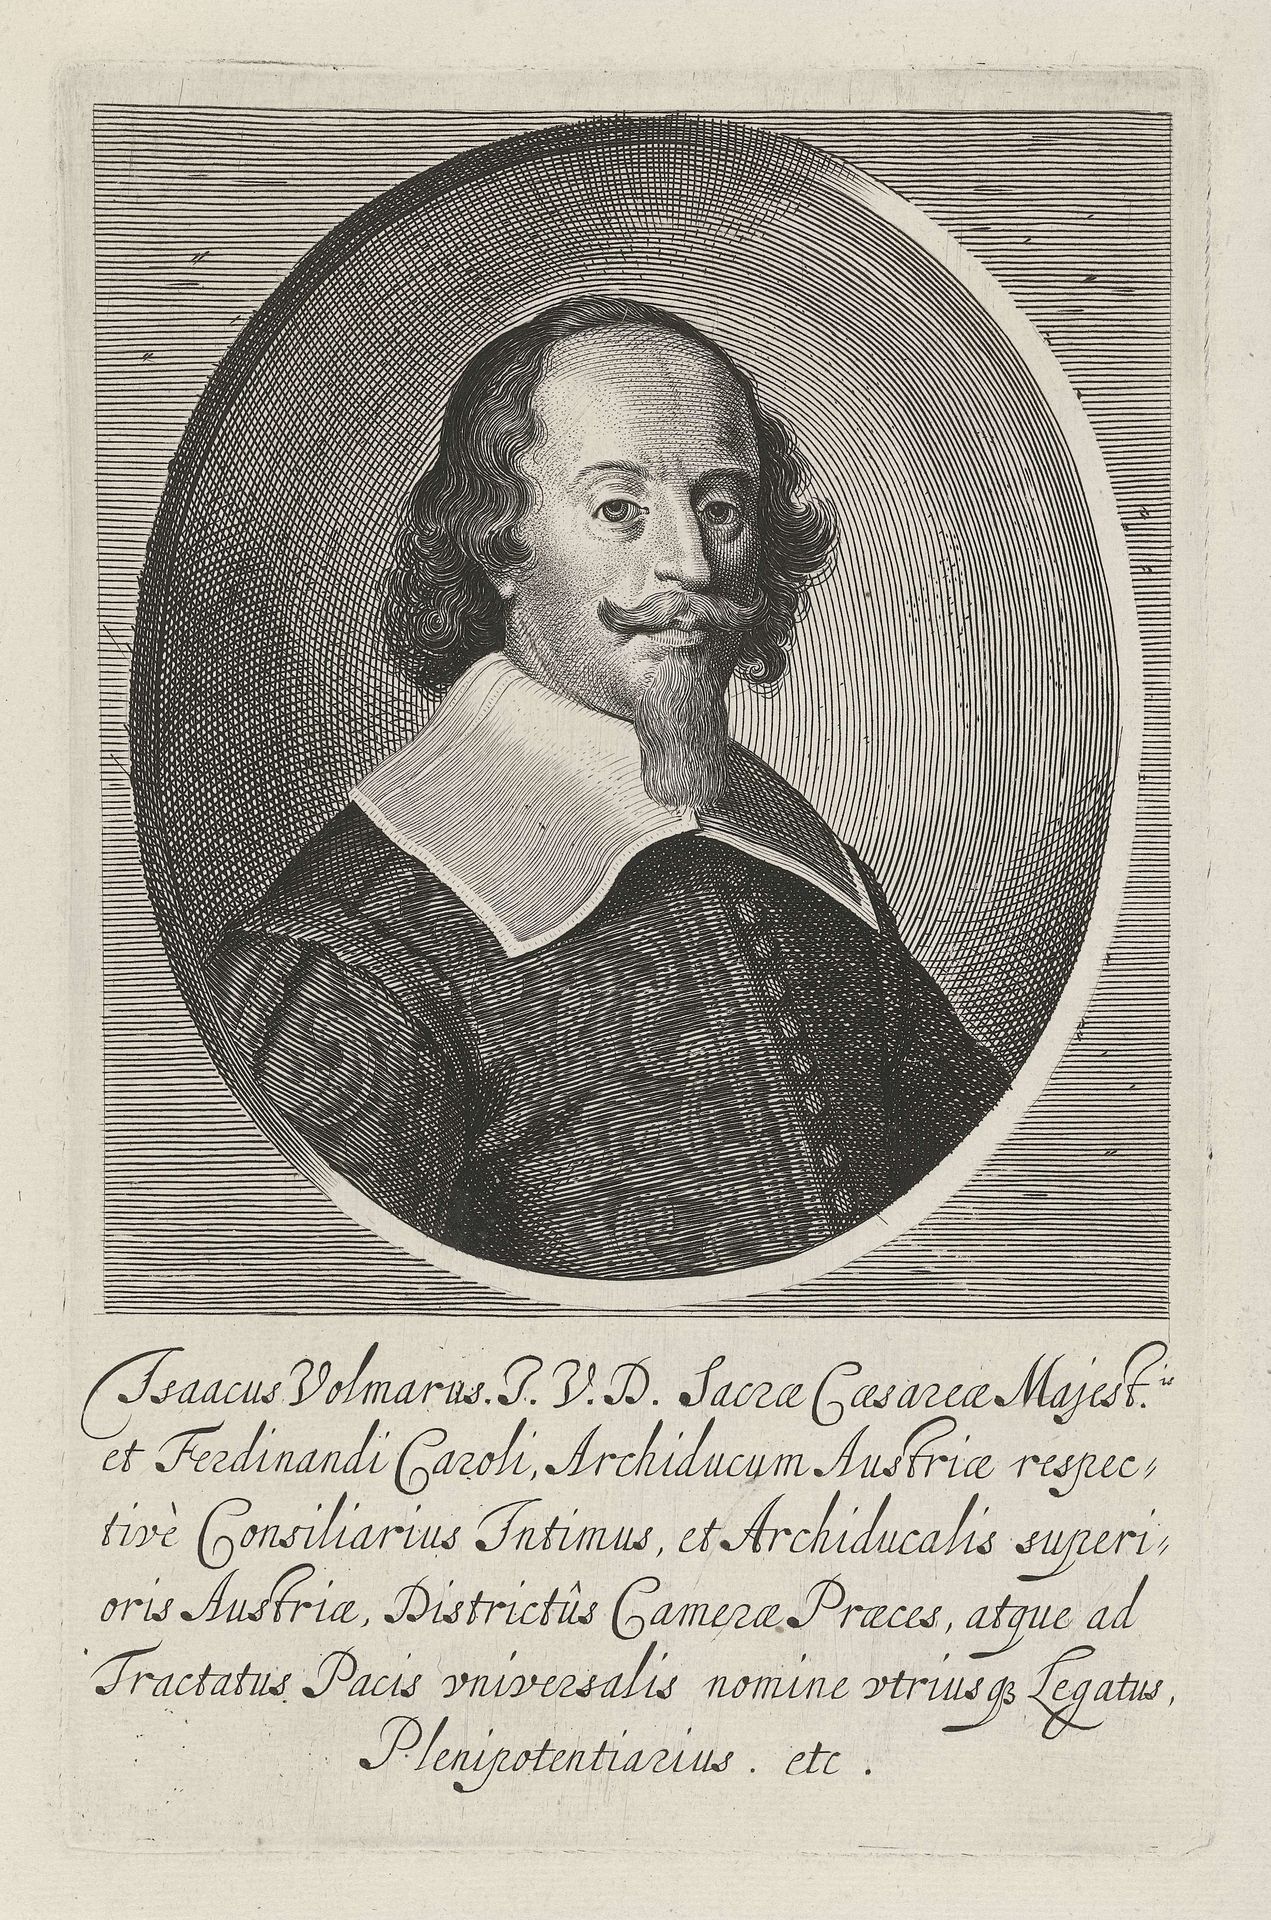 Isaacus Volmarus. I. V. D. Sacræ Cæsareæ Majest.is
et Ferdinandi Caroli, Archiducum Austriæ respec〃
tivè Consiliarius Intimus, et Archiducalis superi〃
oris Austriæ, Districtûs Cameræ Præces, atque ad
Tractatus Pacis vniversalis nomine vtriusqꝫ Legatus,
Plenipotentiarius. etc.